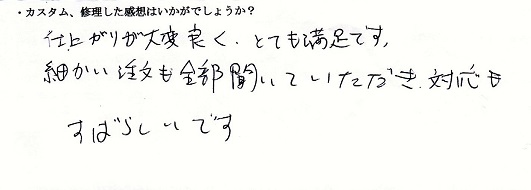 ・カスタム、修理した感想はいかがでしょうか？
仕上がりが大変良く、とても満足です。
細かい注文も全部聞いていただき、対応も
すばらしいです